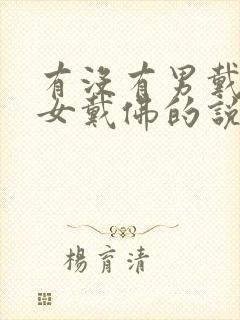 有沒有男戴
女戴佛的說
楊育清